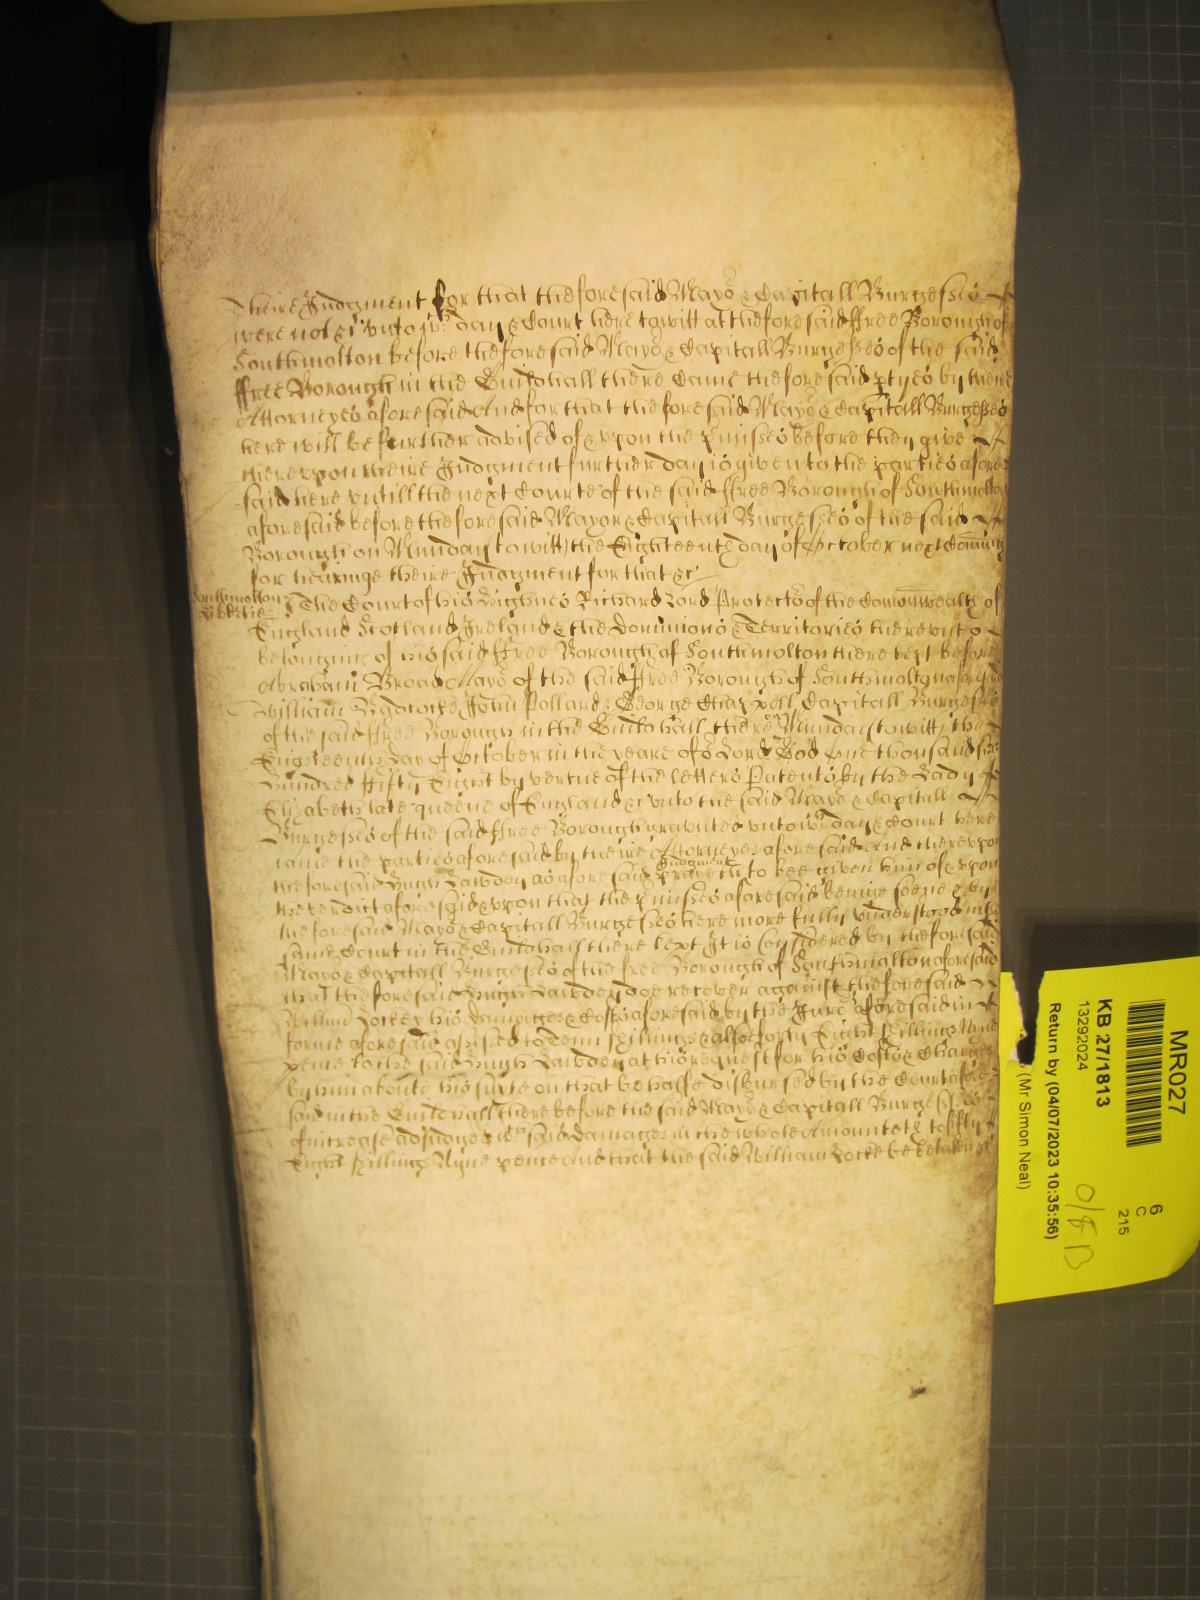 theire Judgment for that the foresaid Mayor & Capitall Burgesses
were not &c vnto wch day & Court here to witt at the foresaid ffree Borough of
Southmolton before the foresaid Mayor & Capitall Burgesses of the said
ffree Borough in the Guildhall there Came the foresaid ptyes by theire
Attorneyes aforesaid And for that the foresaid Mayor & Capitall Burgesses
here will be further advised of & vpon the pmisses before they give
therevpon theire Judgment further day is given to the parties afore
said here vntill the next Courte of the said ffree Borough of Southmolton
aforesaid before the foresaid Mayor & Capitall Burgesses of the said
Borough on Munday to witt the Eighteenth day of October next Coming
for hearinge theire Judgment for that &c
Southmolton
The Court of his Highnes Richard Lord Protector of the Comonwealth of
England Scotland Ireland & the Dominions & Territories therevnto
belonging of his said ffree Borough of Southmolton there kept before
Abraham Broad Mayor of the said ffree Borough of Southmolton aforesaid
William John Pollard & George Chappell Capitall Burgesses
of the said ffree Borough in the Guildhall there Munday to witt the
Eighteenth day of October in the yeare of or Lord God One thousand six
Hundred ffifty Eight by vertue of the letters Patents by the Lady
Elizabeth late queene of England &c vnto the said Mayor & Capitall
Burgesses of the said ffree Borough graunted vnto wch day & Court here
came the parties aforesaid by theire Attorneyes aforesaid And therevpon
the foresaid Hugh Lawdey as aforesaid prayeth Judgment to bee given him of & vpon
the verdict aforesaid & vpon that the pmisses aforesaid beinge seene & by
the foresaid Mayor & Capitall Burgesses here more fully vnderstood in the
same Court in the Guildhall there kept It is Considered by the foresaid
Mayor & Capitall Burgesses of the free Borough of Southmolton aforesaid
that the foresaid Hugh Lawdey doe recover against the foresaid
William Locke his damages & Costs aforesaid by the Jury aforesaid in
forme aforesaid assessed to Tenn shillings & alsoe forty Eight shillings Nyne
pence to the said Hugh Lawdey at his request for his Costs & Charges
by him about his suite on that behalfe disbursed by the Court afore
said in the Guildhall there before the said Mayor & Capitall Burgesses
of increase adjudged wch said damages in the whole Amounteth to ffifty
Eight shillings Nyne pence And that the said William Locke be
MR027
KB 27/1813
13292024
Return by (04/07/2023 10:35:56)
(Mr Simon Neal)
6
C
215